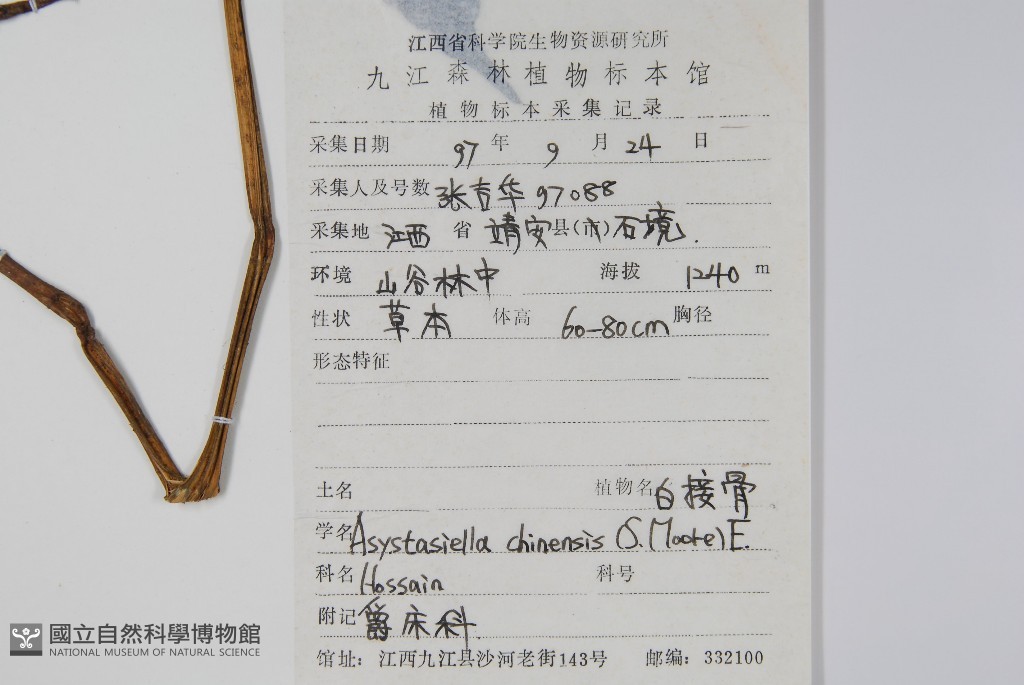 江西省科学院生物资源研究所
九江森林植物标本馆
植物标本采集记录
采集日期 97 年 9 月 24 日
采集人及号数 张吉华 97088
采集地 江西 省 靖安 县(市) 石境.
环境 山谷林中 海拔 1240 m
性状 草本 体高 60-80cm 胸径
形态特征
土名 植物名 白接骨
学名 Asystasiella chinensis (S. Moore) E.
科名 Hossain 科号
附记 爵床科.
馆址：江西九江县沙河老街143号 邮编：332100
國立自然科學博物館
NATIONAL MUSEUM OF NATURAL SCIENCE